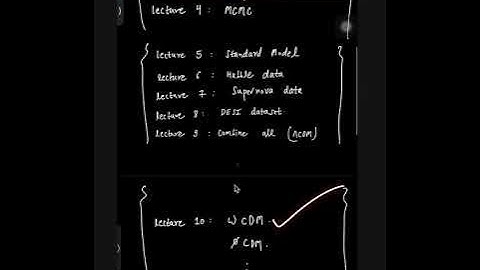 lecture 4 : MCMC
lecture 5 : Standard Model
lecture 6 : Hubble data
lecture 7 : Supernova data
lecture 8 : DESI dataset
lecture 9 : Combine all (ΛCDM)
lecture 10 : ωCDM
φCDM.